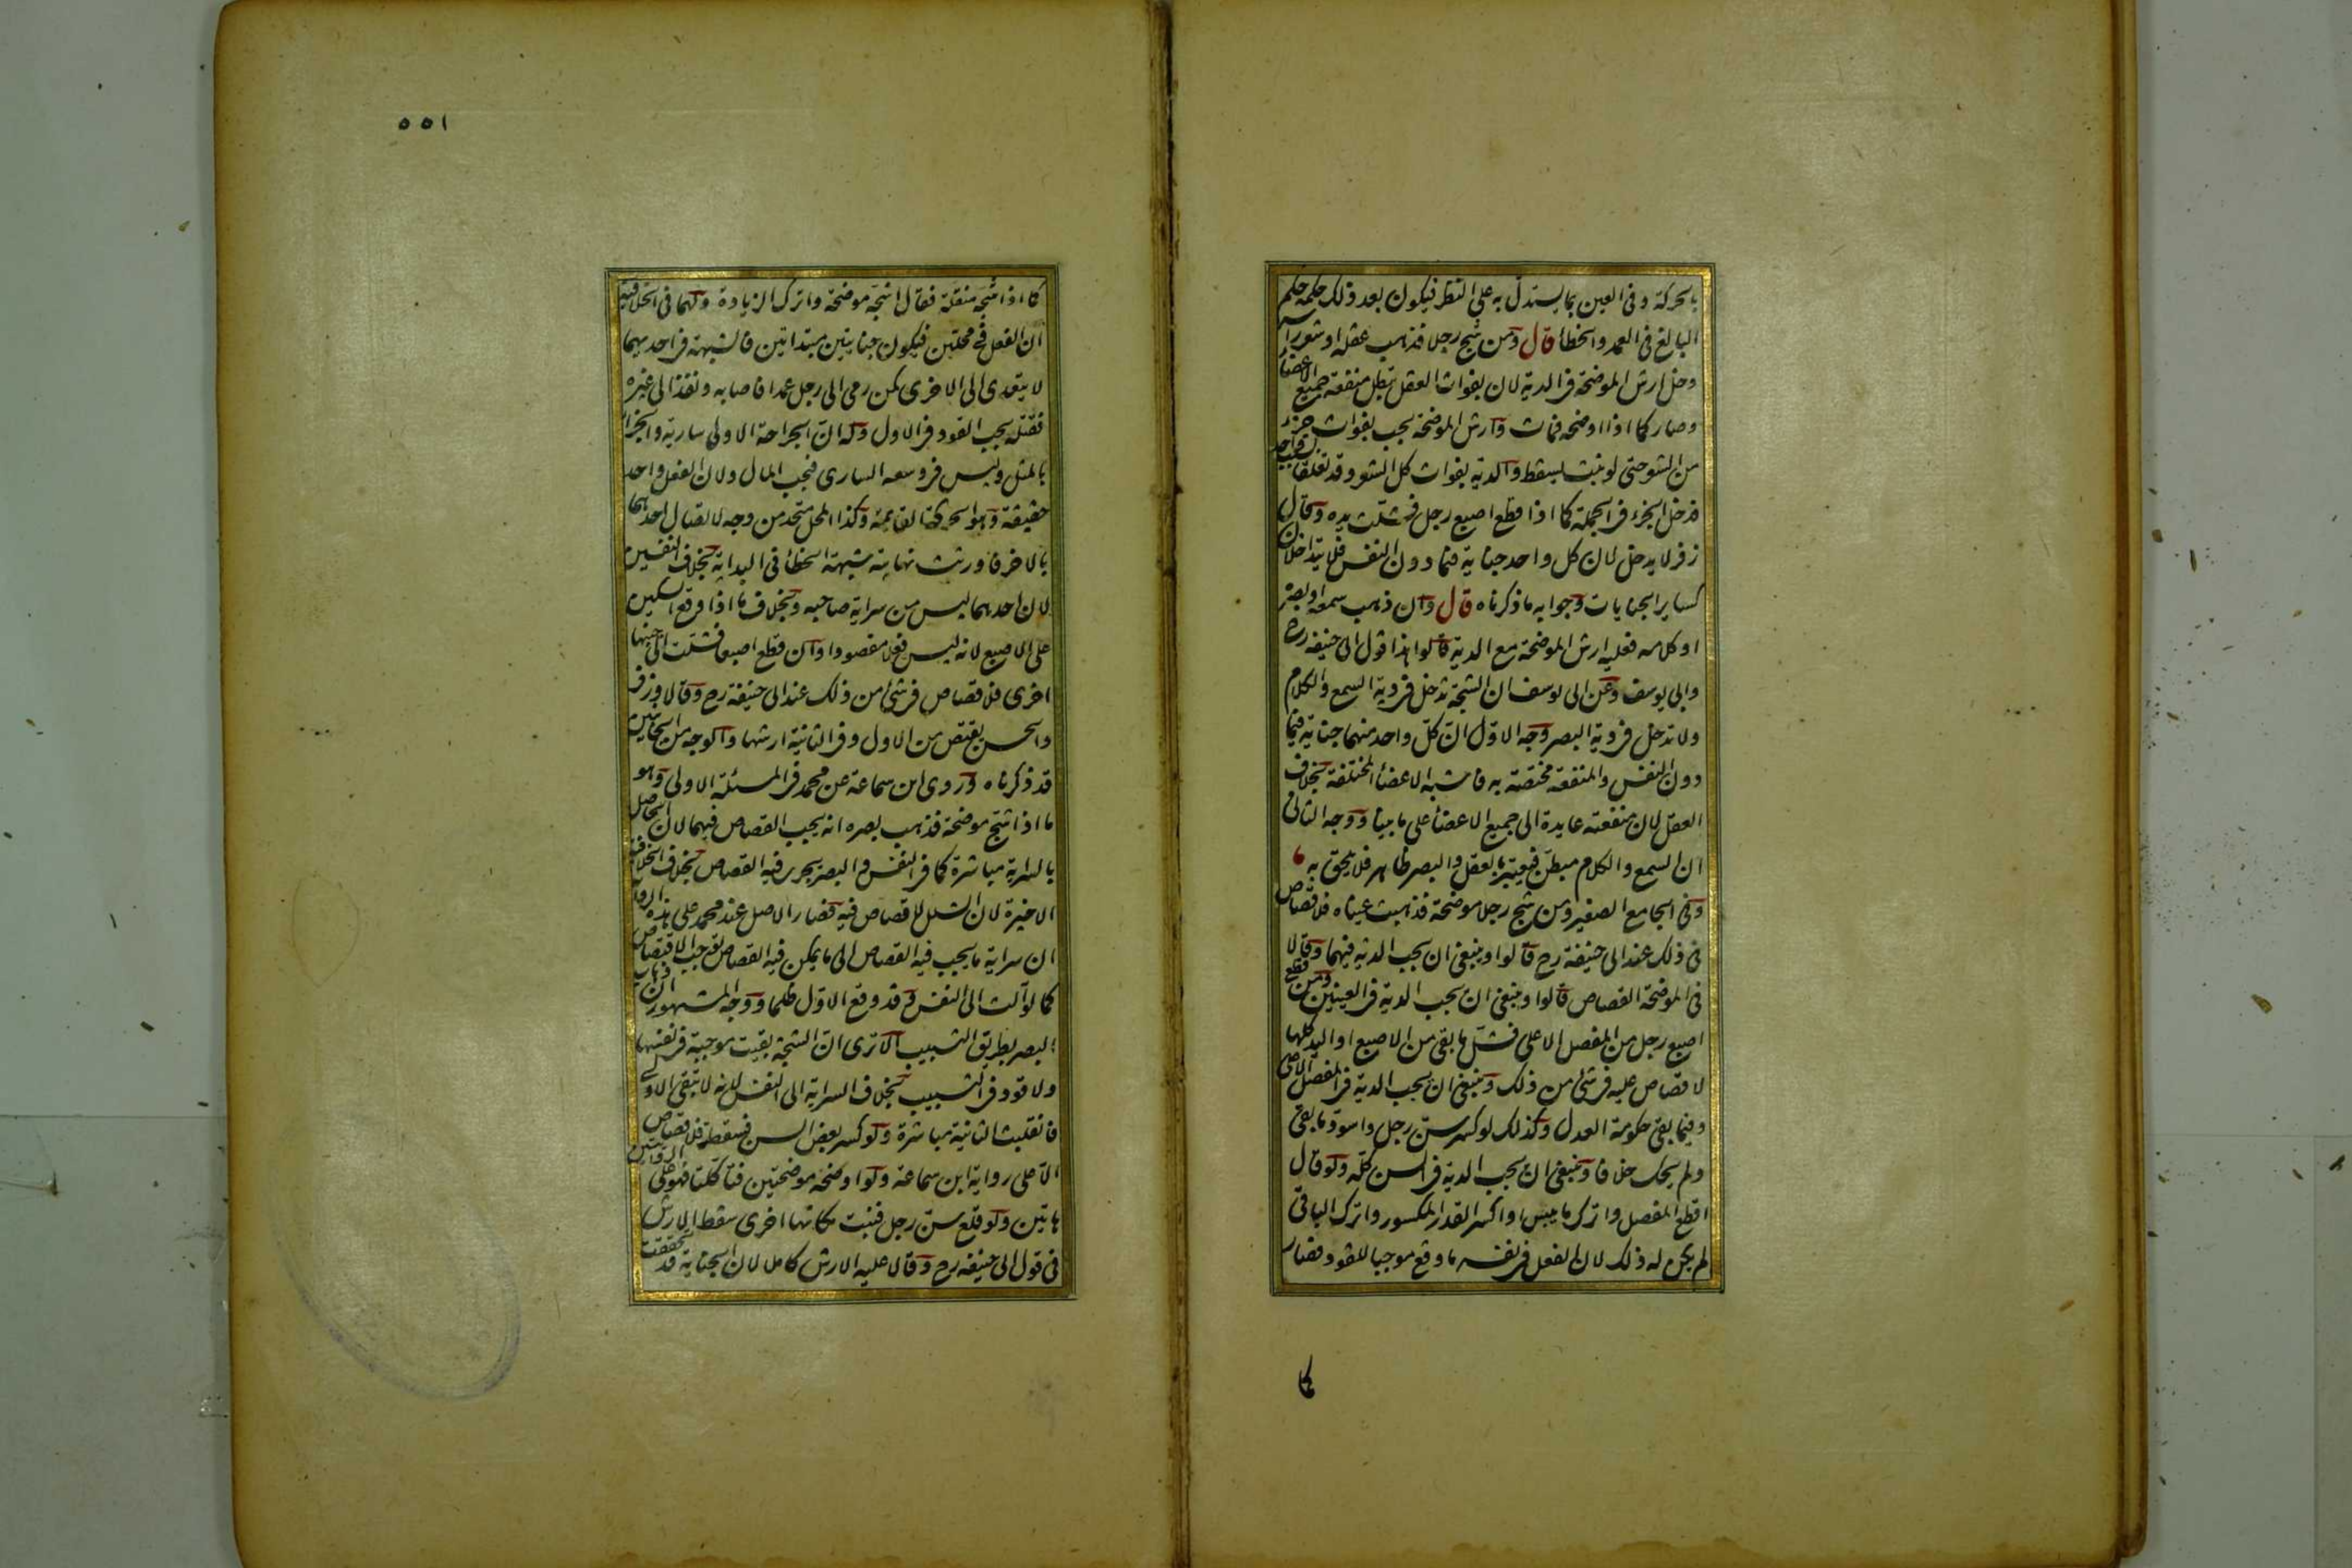 بالحركة وفى العين بما يستدل به على النظر فيكون بعد ذلك حكمه حكم
البالغ فى العمد والخطأ قال ومن شج رجلا فذهب عقله او شعر راسه
دخل ارش الموضحة فى الدية لان بفوات العقل تبطل منفعة جميع الاعضاء
وصار كما اذا اوضحه فمات وارش الموضحة يجب بفوات جزء
من الشعر حتى لو نبت يسقط والدية بفوات كل الشعر وقد تعلقا بسبب واحد
فدخل الجزء فى الجملة كما اذا قطع اصبع رجل فشلت يده وقال
زفر لا يدخل لان كل واحد جناية فيما دون النفس فلا يتداخلان
كساير الجنايات وجوابه ما ذكرناه قال وان ذهب سمعه او بصره
او كلامه فعليه ارش الموضحة مع الدية قالوا هذا قول ابى حنيفة رح
وابى يوسف وعن ابى يوسف ان الشجة تدخل فى دية السمع والكلام
ولا تدخل فى دية البصر وجه الاول ان كل واحد منهما جناية فيما
دون النفس والمنفعة مختصة به فاشبه الاعضأ المختلفة بخلاف
العقل لان منفعته عايدة الى جميع الاعضأ على ما بينا ووجه الثانى
ان السمع والكلام مبطن فيعتبر بالعقل والبصر ظاهر فلا يلحق به
وفى الجامع الصغير ومن شج رجلا موضحة فذهبت عيناه فلا قصاص
فى ذلك عند ابى حنيفة رح قالوا وينبغى ان يجب الدية فيهما وقالا
فى الموضحة القصاص قالوا وينبغى ان يجب الدية فى العينين ومن قطع
اصبع رجل من المفصل الاعلى فشل ما بقى من الاصبع او اليد كلها
لا قصاص عليه فى شئ من ذلك وينبغى ان يجب الدية فى المفصل الاعلى
وفيما بقى حكومة العدل وكذلك لو كسر سن رجل واسود ما بقى
ولم يحك خلافا وينبغى ان يجب الدية فى السن كله ولو قال
اقطع المفصل واترك ما يبس او اكسر القدر المكسور واترك الباقى
لم يكن له ذلك لان الفعل فى نفسه ما وقع موجبا للقود فصار
كما
٥٥١
كما اذا شجه منقلة فقال اشجه موضحة واترك الزيادة ولهما فى الخلافية
ان الفعل فى محلين فيكون جنايتين مبتداتين فالشبهة فى احديهما
لا يتعدى الى الاخرى كمن رمى الى رجل عمدا فاصابه ونفذ الى غيره
فقتله يجب القود فى الاول وله ان الجراحة الاولى سارية والجزأ
بالمثل وليس فى وسعه السارى فيجب المال ولان الفعل واحد
حقيقة وهو الحركة القائمة وكذا المحل متحد من وجه لاتصال احدهما
بالاخر فاورثت نهايته شبهة الخطأ فى البداية بخلاف النفسين
لان احدهما ليس من سراية صاحبه وبخلاف ما اذا وقع السكين
على الاصبع لانه ليس فعلا مقصودا وان قطع اصبعا فشلت الى جنبها
اخرى فلا قصاص فى شئ من ذلك عند ابى حنيفة رح وقالا وزفر
والحسن يقتص من الاول وفى الثانية ارشها والوجه من الجانبين
قد ذكرناه وروى ابن سماعة عن محمد فى المسئلة الاولى وهو
ما اذا شج موضحة فذهب بصره انه يجب القصاص فيهما لان الحاصل
بالسراية مباشرة كما فى النفس والبصر يجرى فيه القصاص بخلاف الخلافية
الاخيرة لان الشلل لا قصاص فيه فصار الاصل عند محمد على هذه الرواية
ان سراية ما يجب فيه القصاص الى ما يمكن فيه القصاص توجب الاقتصاص
كما لو آلت الى النفس وقد وقع الاول ظلما ووجه المشهور ان ذهاب
البصر بطريق التسبيب الا ترى ان الشجة بقيت موجبة فى نفسها
ولا قود فى التسبيب بخلاف السراية الى النفس لانه لا تبقى الاولى
فانقلبت الثانية مباشرة ولو كسر بعض السن فسقطت فلا قصاص
الا على رواية ابن سماعة ولو اوضحه موضحتين فتأكلتا فهو على الروايتين
هاتين ولو قلع سن رجل فنبت مكانها اخرى سقط الارش
فى قول ابى حنيفة رح وقالا عليه الارش كاملا لان الجناية قد تحققت